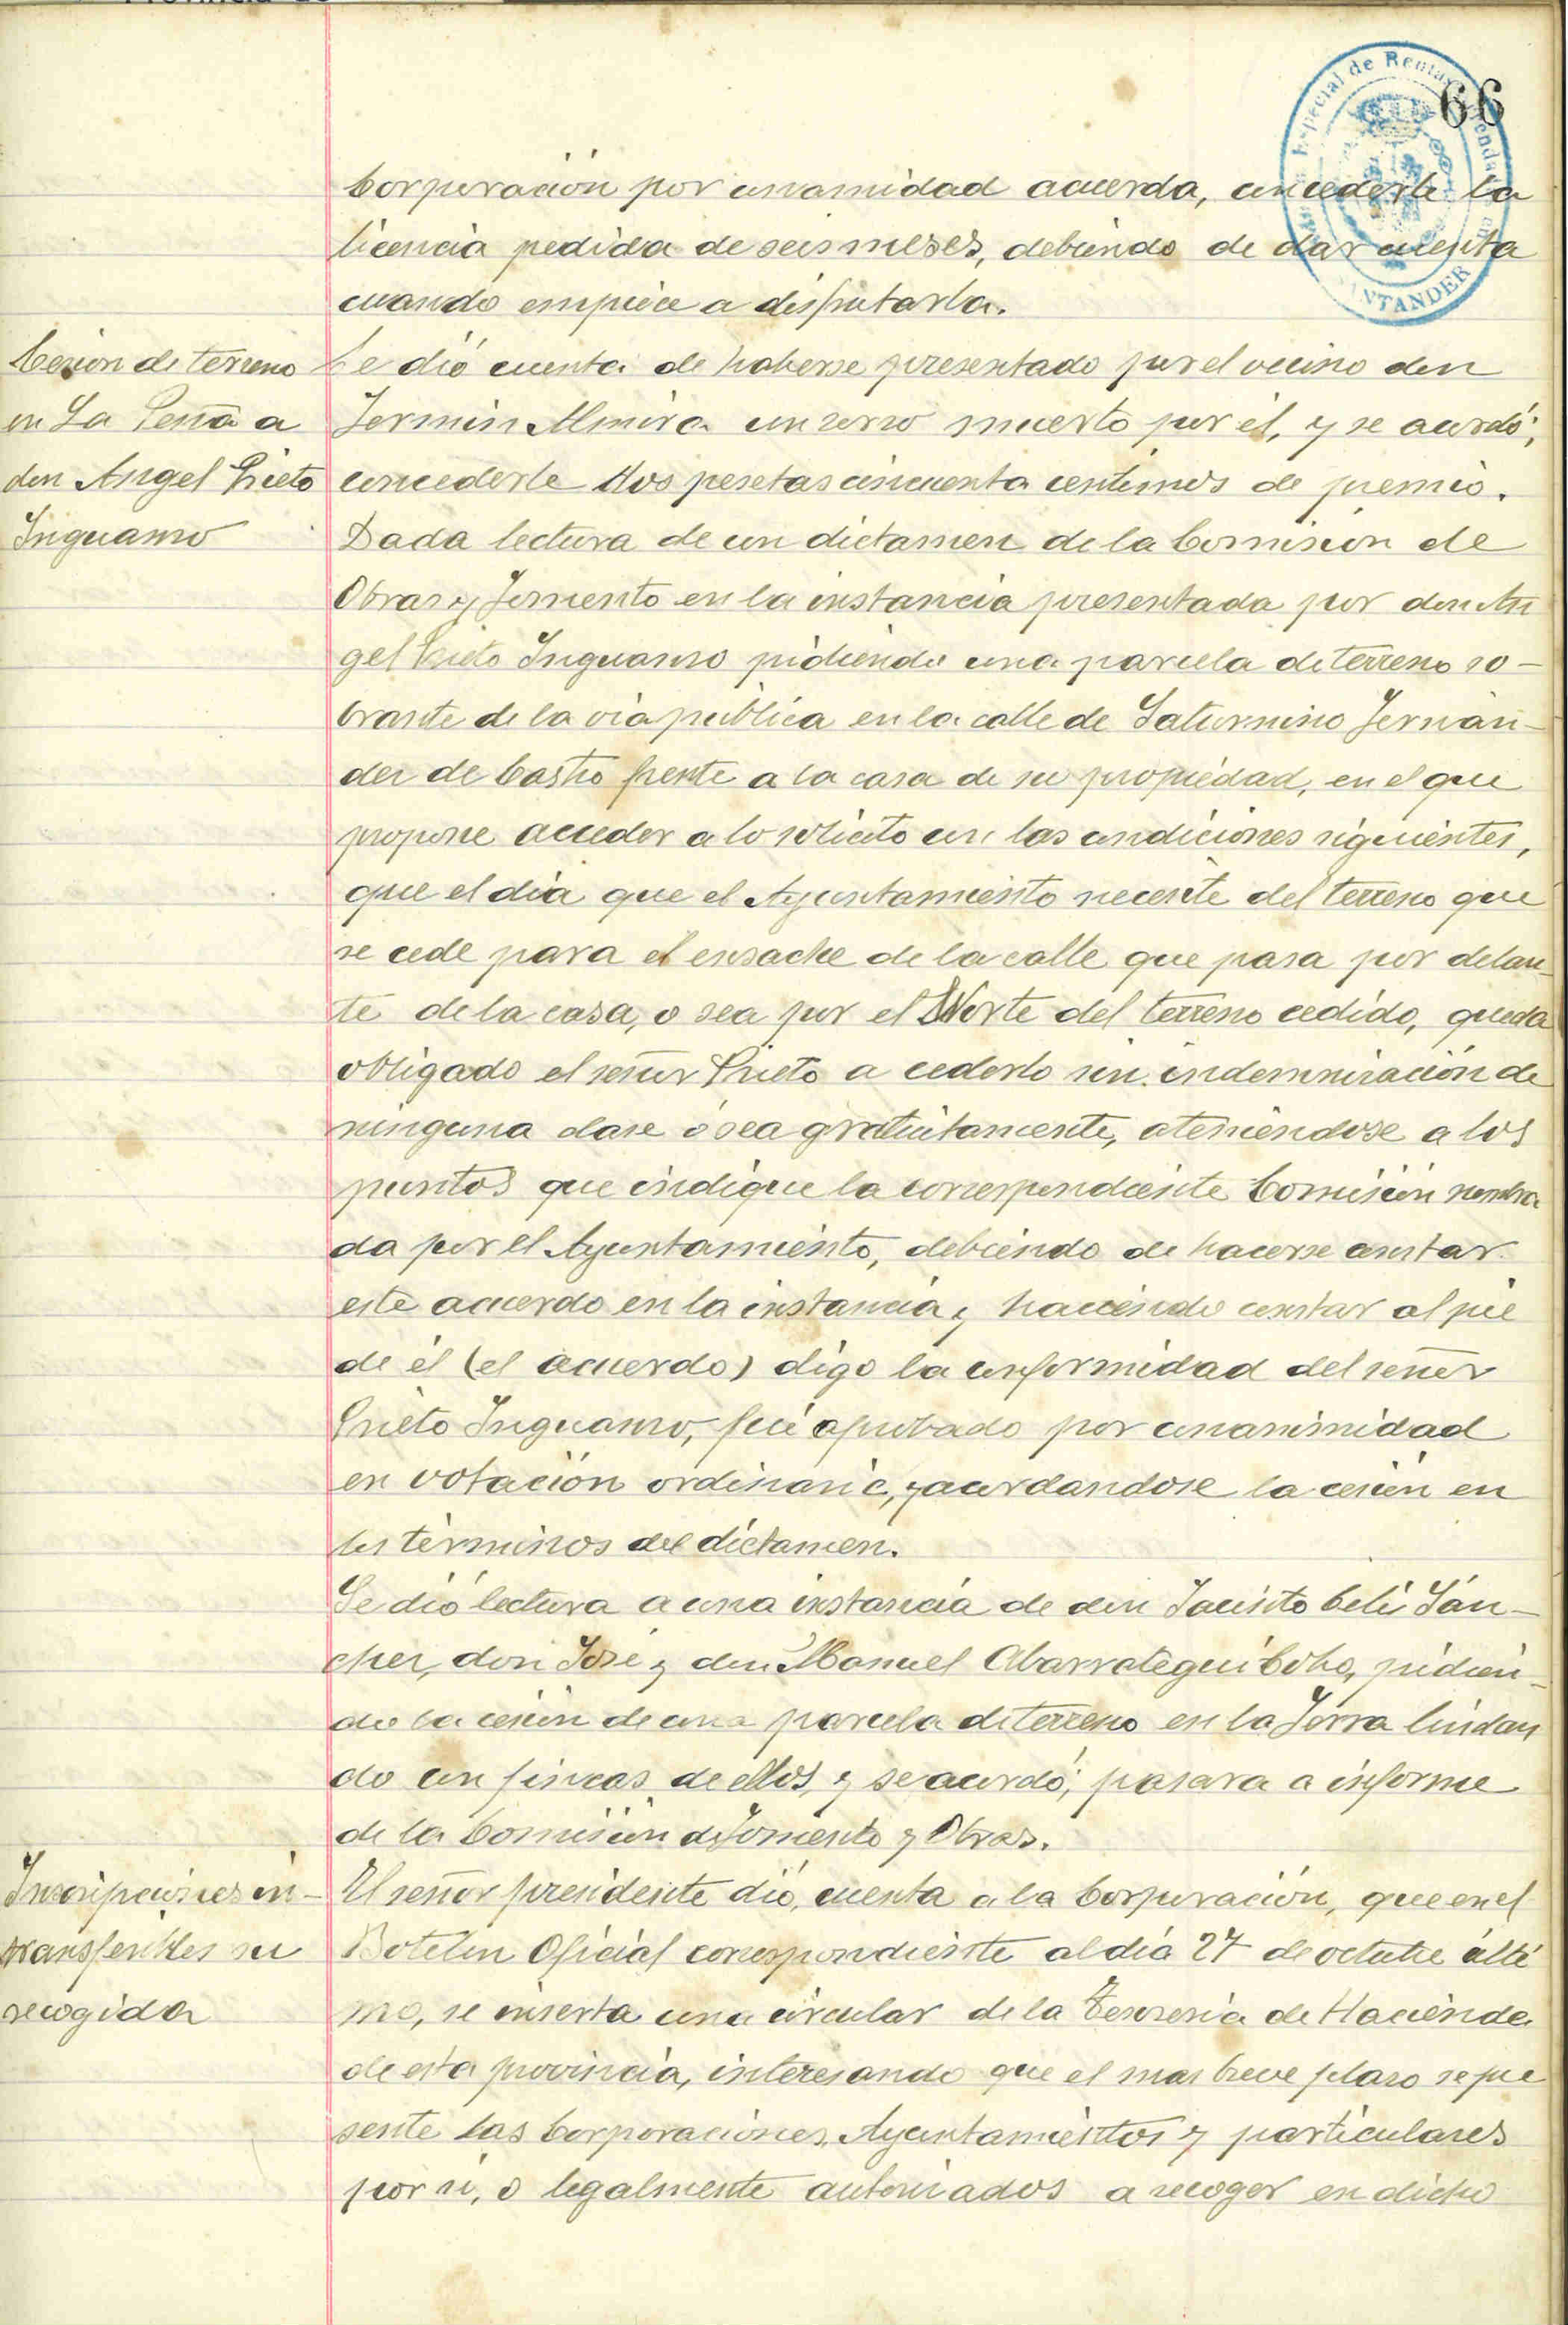 66
Especial de Rentas
SANTANDER
Corporación por unamidad acuerda, concederle la
licencia pedida de seis meses, debiendo de dar cuenta
cuando empiece a disfrutarla.
Cesion de terreno
en La Peña a
don Angel Prieto
Inguanzo
Se dió cuenta de haberse presentado por el vecino don
Fermin un zorro muerto por él, y se acordó;
concederle dos pesetas cincuenta centimos de premio.
Dada lectura de un dictamen de la Comision de
Obras y Fomento en la instancia presentada por don An
gel Prieto Inguanzo pidiendo una parcela de terreno so-
brante de la via publica en la calle de Saturnino Fernan-
dez de Castro frente a la casa de su propiedad, en el que
propone acceder a lo solicito con las condiciones siguientes,
que el dia que el Ayuntamiento necesite del terreno que
se cede para el ensache de la calle que pasa por delan-
te de la casa, o sea por el Norte del terreno cedido, queda
obligado el señor Prieto a cederlo sin indemnización de
ninguna clase ó sea gratuitamente, ateniendose a los
puntos que indique la correspondiente Comisión nombra
da por el Ayuntamiento, debiendo de hacerse constar
este acuerdo en la instancia y haciendo constar al pie
de él (el acuerdo) digo la conformidad del señor
Prieto Inguanzo, fué aprobado por unanimidad
en votación ordinaria, y acordandose la cesión en
los terminos del dictamen.
Se dió lectura a una instancia de don Jacinto Celis Sán-
chez, don José y don Manuel Abarrategui Cobo, pidien-
do la cesión de una parcela de terreno en la lindan
do con fincas de ellos, y se acordó; pasara a informe
de la Comisión de Fomento y Obras.
Inscripciones in-
transferibles su
recogida
El señor presidente dió, cuenta a la Corporación, que en el
Botelin Oficial correspondiente al dia 27 de octubre últi
mo, se inserta una circular de la Tesoreria de Hacienda
de esta provincia, interesando que el mas breve plazo se pre
sente las Corporaciones, Ayuntamientos y particulares
por si, o legalmente autorizados a recoger en dicho